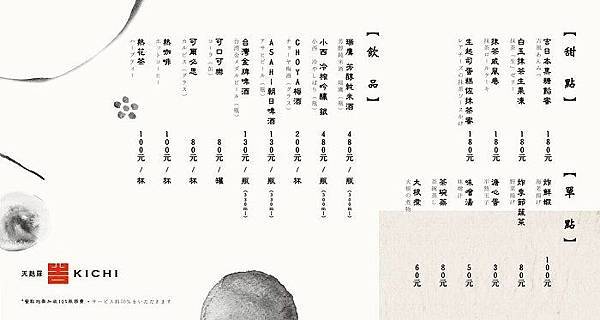 【甜點】
宮日本黑糖餡蜜
180元
白玉抹茶生果凍
抹茶(生)ゼリー
180元
抹茶戚風卷
抹茶ロールケーキ
180元
生起司蛋糕佐抹茶蜜
レアチーズの抹茶ソースかけ
180元
【單點】
炸鮮蝦
海老揚げ
100元
炸季節蔬菜
野菜揚げ
80元
溏心蛋
半熟玉子
30元
味噌湯
味噌汁
50元
茶碗蒸
茶碗蒸し
80元
大根煮
大根の煮物
60元
【飲品】
瑞鷹 芳醇純米酒
芳醇純米酒 瑞鷹(瓶)
480元/瓶(300ml)
小西 冷搾吟釀 銀
小西 冷やしぼり(瓶)
480元/瓶(300ml)
CHOYA梅酒
チョーヤ梅酒(グラス)
200元/杯
ASAHI朝日啤酒
アサヒビール(瓶)
130元/瓶(330ml)
台灣金牌啤酒
台湾金メダルビール(瓶)
130元/瓶(330ml)
可口可樂
コーラ(缶)
80元/罐
可爾必思
カルピス(グラス)
80元/杯
熱咖啡
ホットコーヒー
100元/杯
熱花茶
ハーブティー
100元/杯
天麩羅 吉 KICHI
*餐點均需加收10%服務費・サービス料10%をいただきます